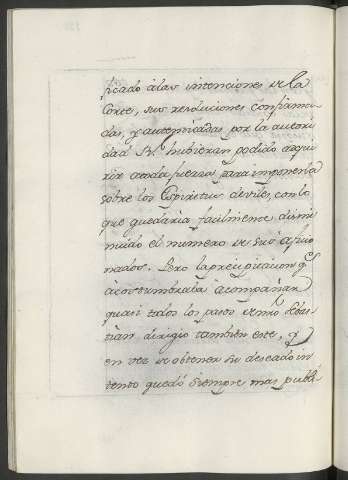 ficado à las intenciones de la
Corte, sus resoluciones confirma-
das, y autenticadas por la autori
dad Rl. hubieran podido adqui
rir aquella fuerza para imponerla
sobre los Espiritus deviles, con lo
que quedaria facilmente dismi
nuido el numero de sus aficio
nados. Pero la precipitacion qe.
acostumbraba acompañar
quasi todos los pasos
dirigio tambien este, y
en vez de obtener su deseado in
tento quedó siempre mas publi